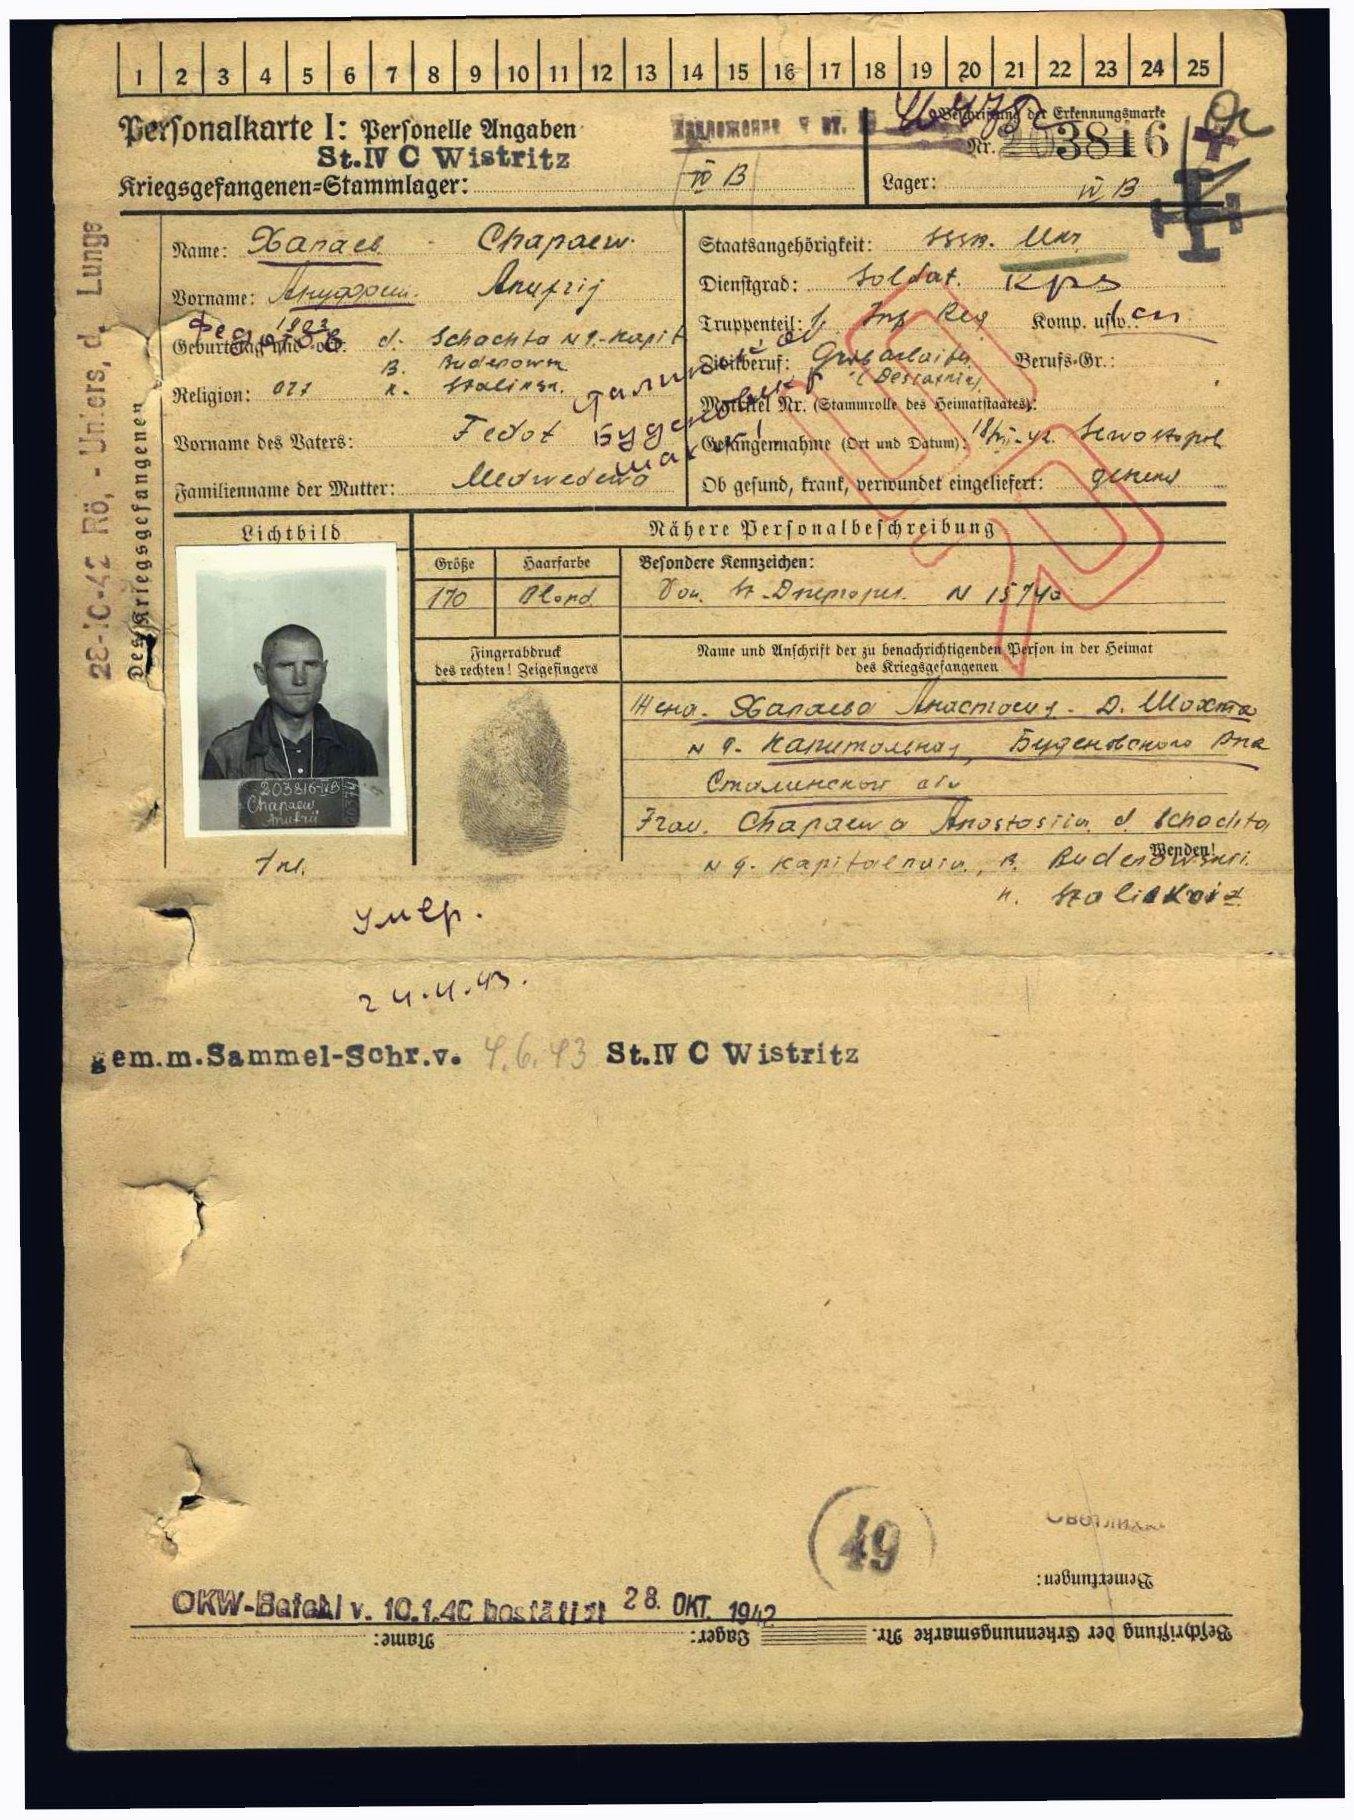 1 2 3 4 5 6 7 8 9 10 11 12 13 14 15 16 17 18 19 20 21 22 23 24 25
Personalkarte I: Personelle Angaben
St.IV C Wistritz
Kriegsgefangenen=Stammlager: IV B
Beschriftung der Erkennungsmarke
Nr. 203816
Lager: IV B
Name: Хапаев Chapaew
Vorname: Ануфрий Anufrij
Федотов
Geburtstag und -ort: 1903 d. Schachta N 9. Kapit
Religion: ort
Vorname des Vaters: Fedot
Familienname der Mutter: Medwedewa
Staatsangehörigkeit: SSSR. Ukr
Dienstgrad: Soldat.
Truppenteil: Inf Reg Komp. usw.:
Zivilberuf: Berufs-Gr.:
Matrikel Nr. (Stammrolle des Heimatstaates):
Gefangennahme (Ort und Datum): Sewostopol
Ob gesund, krank, verwundet eingeliefert: gesund
28-10-42 Rö, - Unters, d, Lunge
Des Kriegsgefangenen
Lichtbild
Nähere Personalbeschreibung
Größe Haarfarbe Besondere Kennzeichen:
170 Blond N 15740
Fingerabdruck
des rechten! Zeigefingers
Name und Anschrift der zu benachrichtigenden Person in der Heimat
des Kriegsgefangenen
203816-IVB
Chapaew
Anufrij
Жена. Хапаева Анастасия. Д. Шахта
N 9. Капитальная, Буденовского Рна
Сталинской обл
Frau. Chapaewa Anastasiia d. Schachta
Wenden!
N 9. Kapitalnaia, R. Budenowski.
Умер.
24.4.43.
gem.m.Sammel-Schr.v. 4.6.43 St.IV C Wistritz
49
Bemerkungen:
OKW-Befehl v. 10.1.40 bestätigt 28. OKT. 1942
Beschriftung der Erkennungsmarke Nr. Lager: Name: